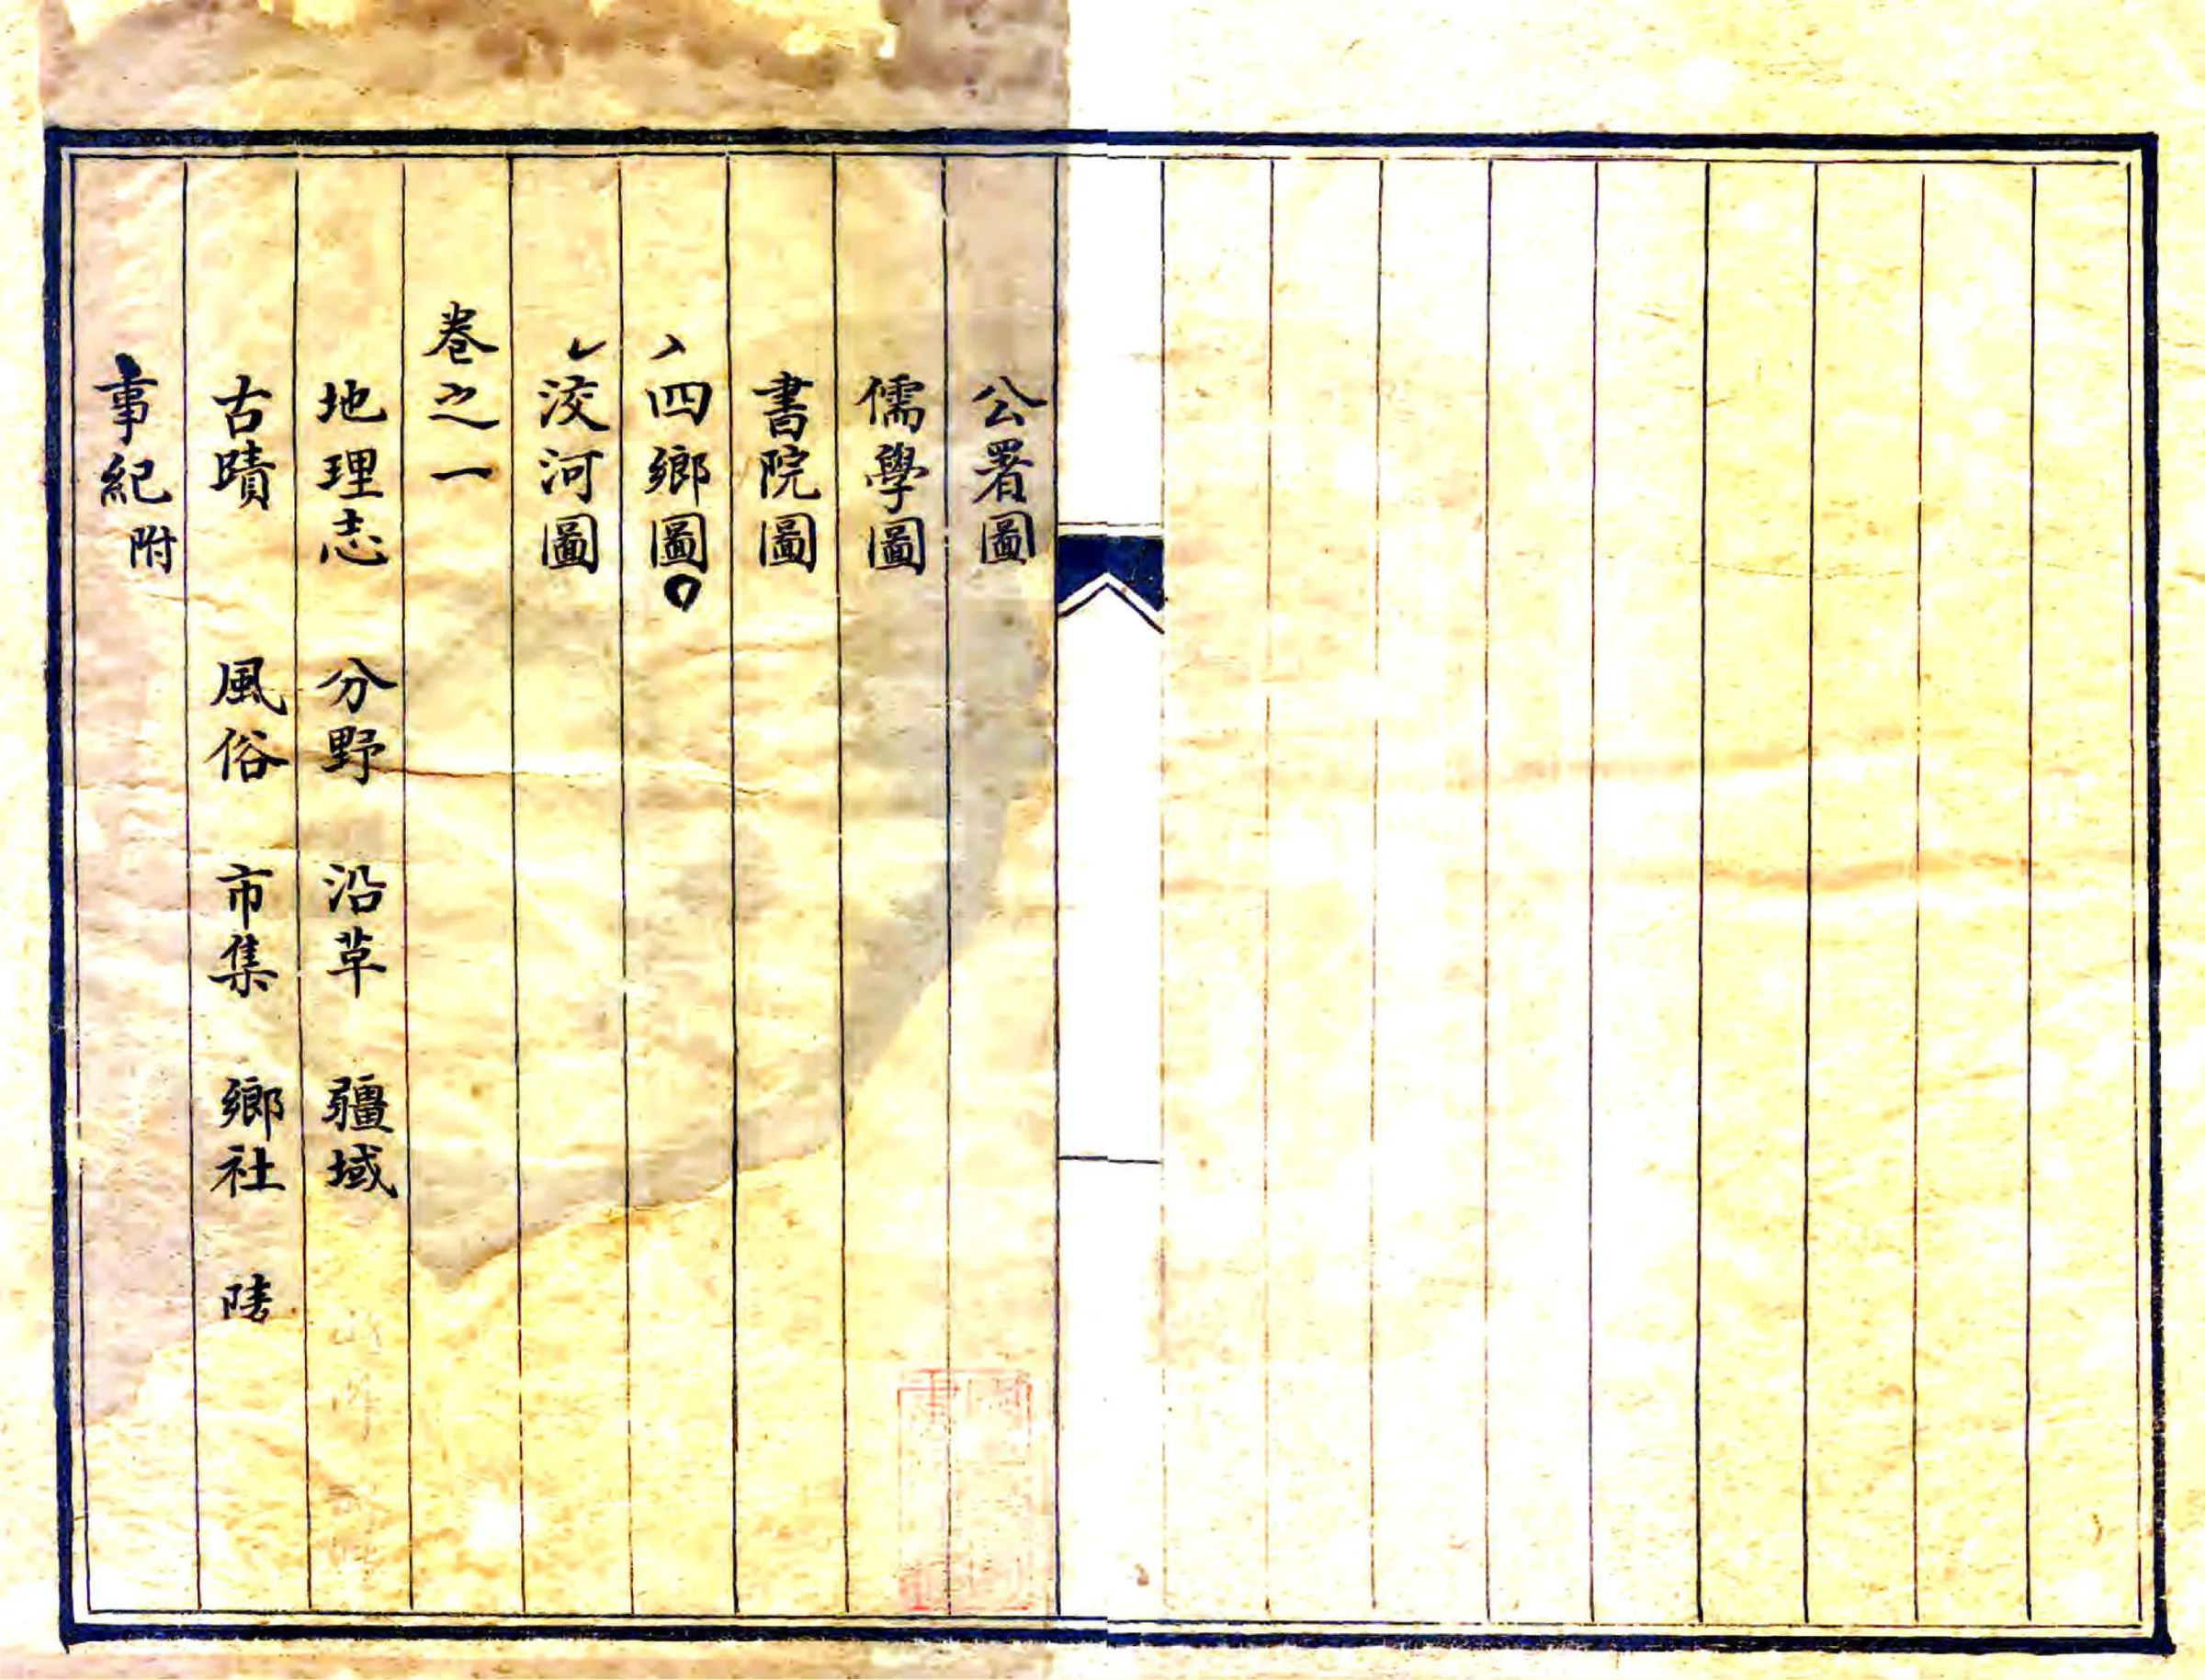 公署圖
儒學圖
書院圖
四鄉圖
洨河圖
卷之一
地理志 分野 沿革 疆域
古蹟 風俗 市集 鄉社
事紀附